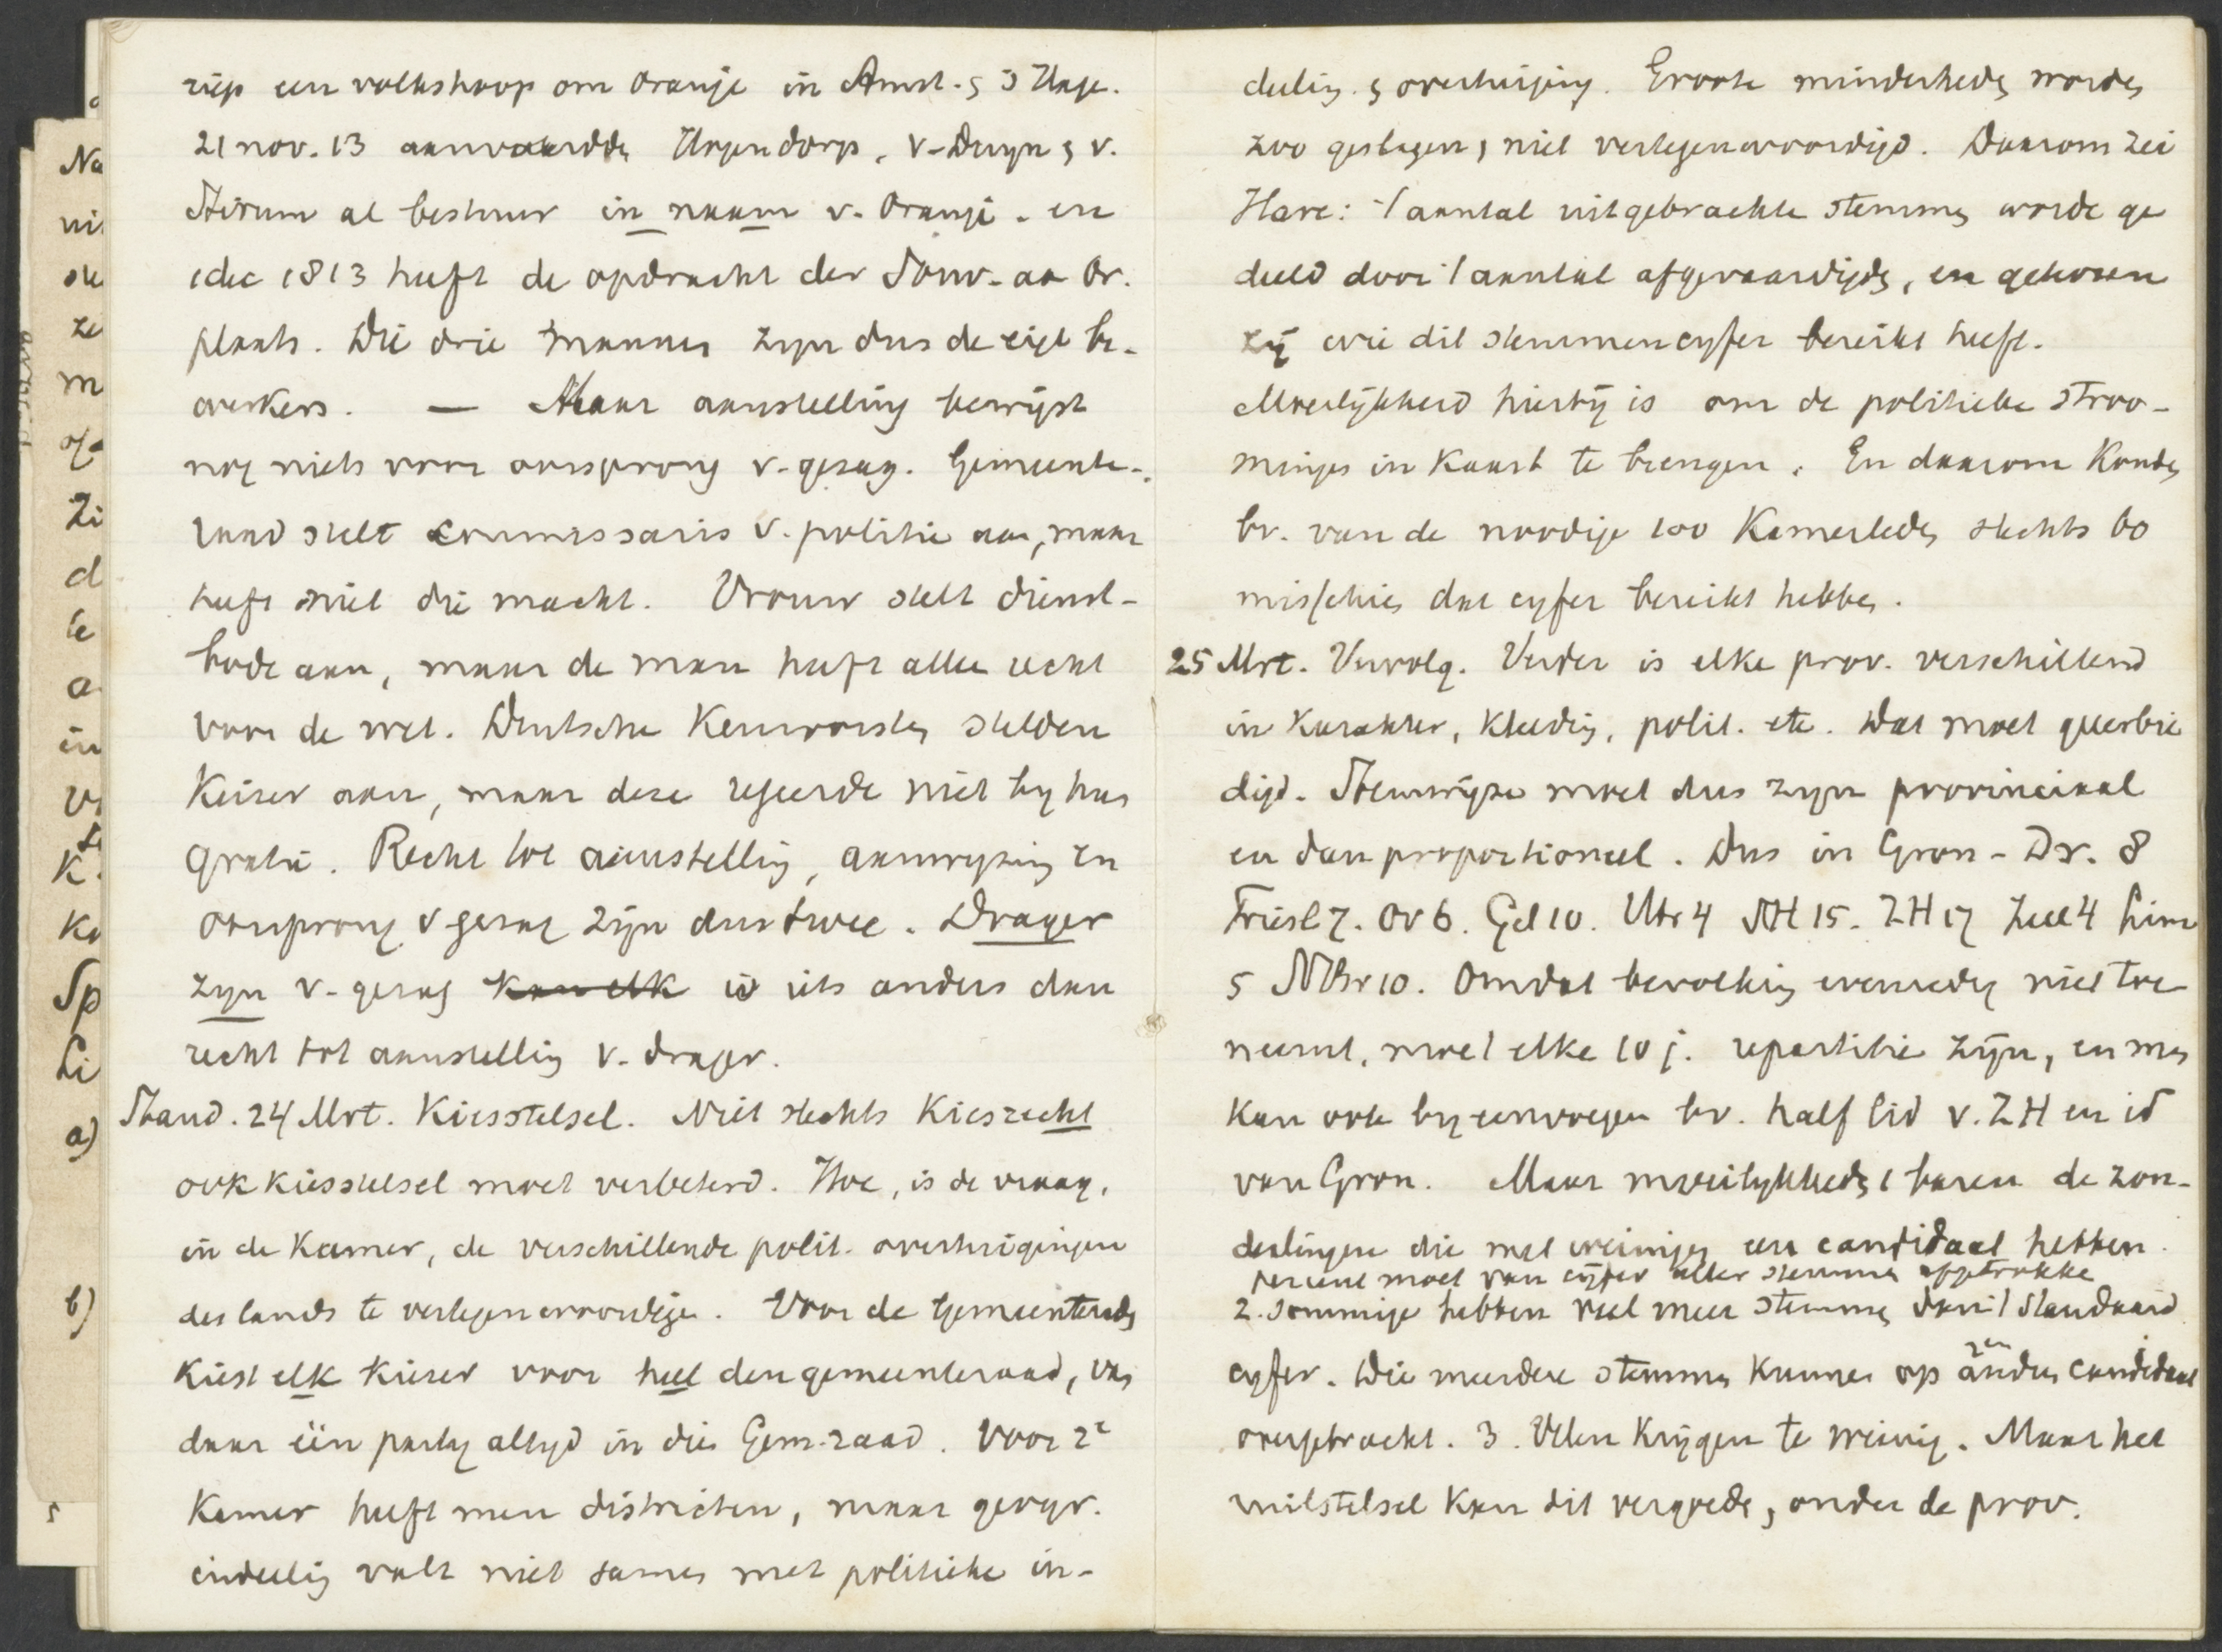 riep een volkshoop om Oranje in Amst. & 's Hage.
21 nov. 13 aanvaardde Hogendorp, v. Duyn & v.
Stirum al bestuur in naam v. Oranje. en
1 dec 1813 heeft de opdracht der Souv. aa Or.
plaats. Die drie mannen zyn dus de eigl be-
werkers. — Maar aanstelling bewijst
nog niets voor oorsprong v. gezag. Gemeente-
raad stelt commissaris v. politie aan, maar
heeft niet die macht. Vrouw stelt dienst-
bode aan, maar de man heeft alle recht
voor de wet. Duitsche Keurvorsten stelden
Keizer aan, maar deze regeerde niet by hun
gratie. Recht tot aanstelling, aanwyzing en
oorsprong v gezag zijn dus twee. Drager
zyn v. gezag kan elk is iets anders dan
recht tot aanstelling v. drager.
Stand. 24 Mrt. Kiesstelsel. Niet slechts Kiesrecht
ook kiesstelsel moet verbeterd. Hoe, is de vraag,
in de Kamer, de verschillende polit. overtuigingen
des lands te vertegenwoordigen. Voor de Gemeenterads
Kiest elk kiezer voor heel den gemeenteraad, vas
daar één party altyd in die Gem. raad. Voor 2e
Kamer heeft men districten, maar geogr.
indeeling valt niet samen met politieke in-
deeling & overtuiging. Groote minderheden worden
zoo geslagen & niet vertegenwoordigd. Daarom zei
Hare: 't aantal uitgebrachte stemmen worde ge
deeld door 't aantal afgevaardigden, en gekozen
zij wie dit stemmencyfer bereikt heeft.
Moeilijkheid hierbij is om de politieke stroo-
mingen in Kaart te brengen. En daarom Konden
bv. van de noodige 100 Kamerleden slechts 60
misschien dat cyfer bereikt hebben.
25 Mrt. Vervolg. Verder is elke prov. verschillend
in Karakter, Kleedig, polit. etc. Dat moet geeerbie
digd. Stemwijze moet dus zyn provinciaal
en dan proportioneel. Dus in Gron - Dr. 8
Friesl 7. Ov 6. Gel 10. Utr 4 NH 15. ZH 17 Zeel 4 Lim
5 NBr 10. Omdat bevolking evenredig niet toe
neemt, moet elke 10 j. repartitie zijn, en men
kan ook byeenvoegen bv. half lid v. ZH en id
van Gron. Maar moeilykheden 1 baren de zon-
derlingen die met weinigen een candidaat hebben.
percent moet van cijfer aller stemmen afgetrokke
2. Sommige hebben veel meer stemmen dan 't Standaard
cyfer. Die meerdere stemmen kunnen op 2en andren candidaat
overgebracht. 3. Velen Krijgen te weinig. Maar het
uitstelsel kan dit vergoeden, onder de prov.